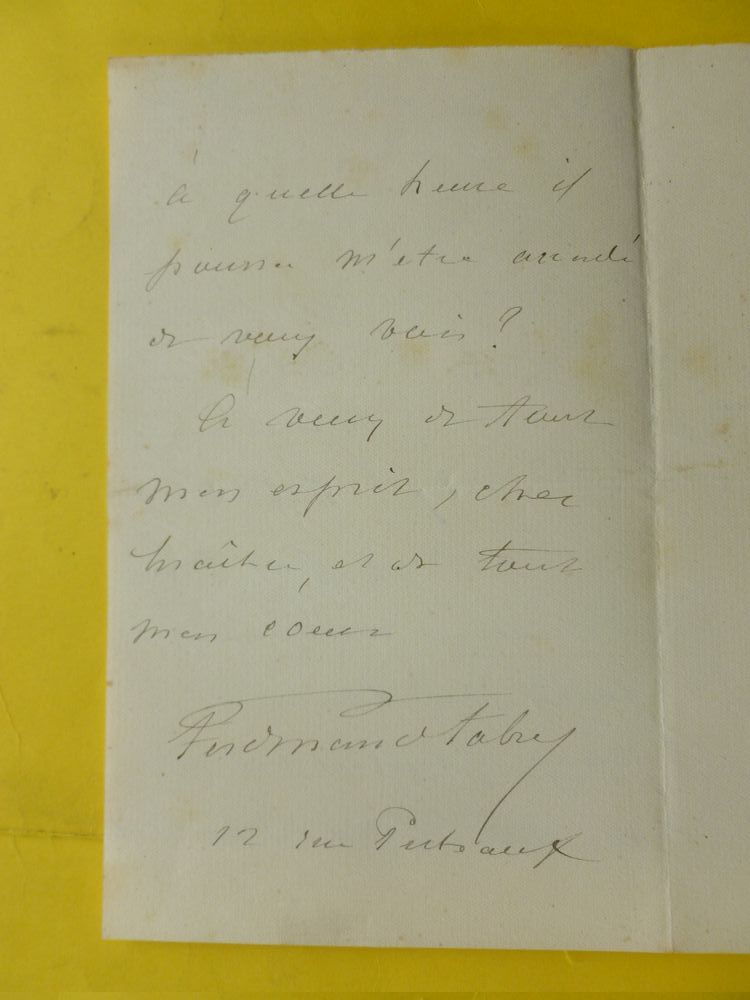 à quelle heure il
pourra m'être accordé
de vous voir ?
A vous de tout
mon esprit, cher
maître, et de tout
mon coeur
Ferdinand Fabre
12 rue Puteaux